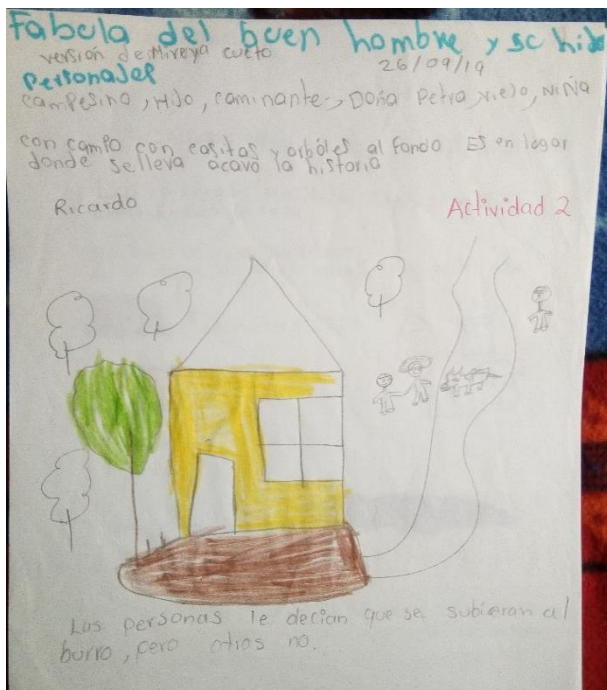 Fabula del buen hombre y su hijo
versión de Mireya cueto
26/09/19
Personajes
campesino, Hijo, caminante, Doña Petra, viejo, NIÑA
con campo con casitas y arbóles al fondo Es en lugar
donde se lleva acavo la historia
Ricardo
Actividad 2
Las personas le decian que se subieran al
burro, pero otros no.